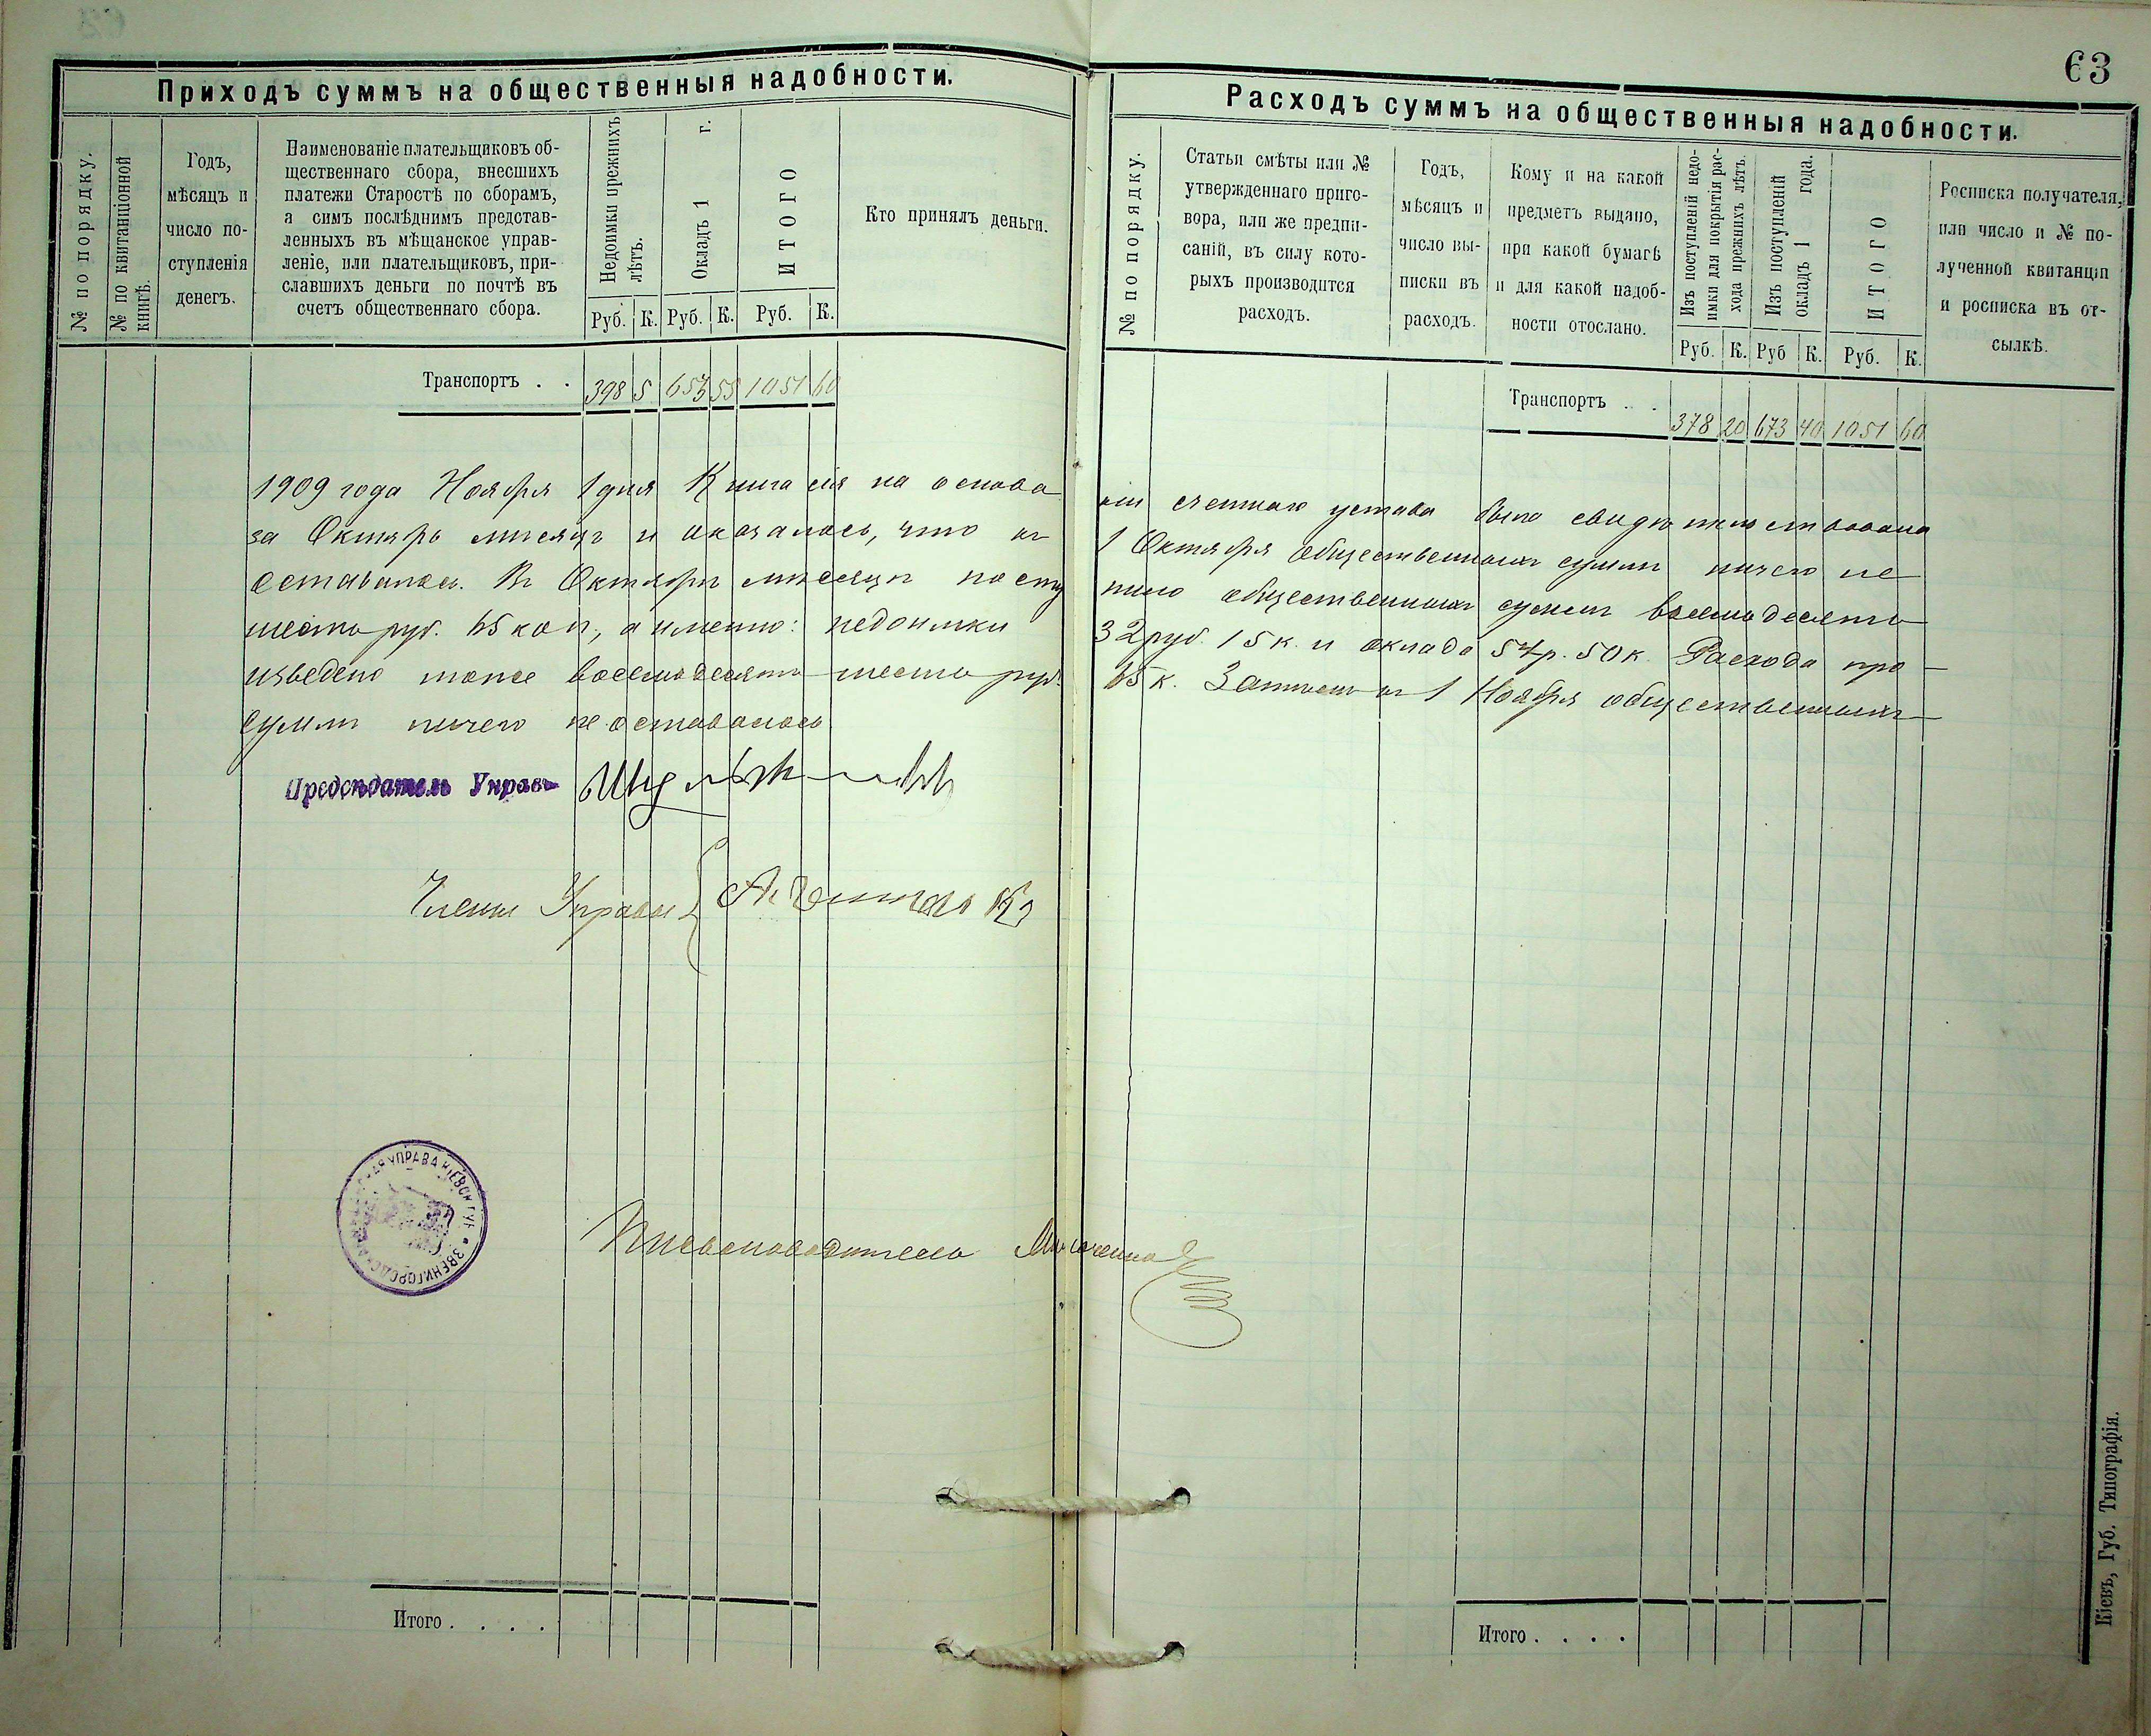 63
Приходъ суммъ на общественныя надобности.
№ по порядку.
№ по квитанціонной
книгѣ.
Годъ,
мѣсяцъ и
число по-
ступленія
денегъ.
Наименованіе плательщиковъ об-
щественнаго сбора, внесшихъ
платежи Старостѣ по сборамъ,
а симъ послѣднимъ представ-
ленныхъ въ мѣщанское управ-
леніе, или плательщиковъ, при-
славшихъ деньги по почтѣ въ
счетъ общественнаго сбора.
Недоимки прежнихъ
лѣтъ.
Окладъ 1 г.
ИТОГО
Руб. К. Руб. К. Руб. К.
Кто принялъ деньги.
Транспортъ . . 398 5 653 55 1051 60
1909 года Ноября 1 дня Книга сія на основа
за Октябрь мѣсяцъ и оказалось, что къ
оставалось. Въ Октябрѣ мѣсяцѣ посту
шесть руб. 65 коп., а именно: недоимки
изведено тоже восемьдесятъ шесть руб.
суммъ ничего не оставалось
Предсѣдатель Управы
Члены Управы
УПРАВА КІЕВСК. ГУБ. * ЗВЕНИГОРОДСК
Письмоводитель
Итого . . . .
Расходъ суммъ на общественныя надобности.
№ по порядку.
Статьи смѣты или №
утвержденнаго приго-
вора, или же предпи-
саній, въ силу кото-
рыхъ производится
расходъ.
Годъ,
мѣсяцъ и
число вы-
писки въ
расходъ.
Кому и на какой
предметъ выдано,
при какой бумагѣ
и для какой надоб-
ности отослано.
Изъ поступленій недо-
имки для покрытія рас-
хода прежнихъ лѣтъ.
Изъ поступленій
окладъ 1 года.
ИТОГО
Руб. К. Руб К. Руб. К.
Росписка получателя,
или число и № по-
лученной квитанціи
и росписка въ от-
сылкѣ.
Транспортъ . . 378 20 673 40 1051 60
ніи счетнаго устава была свидѣтельствована
1 Октября общественныхъ суммъ ничего не
пило общественныхъ суммъ восемьдесятъ
32 руб. 15 к. и оклада 54 р. 50 к. Расхода про
65 к. Затѣмъ къ 1 Ноября общественныхъ
Итого . . . .
Кіевъ, Губ. Типографія.